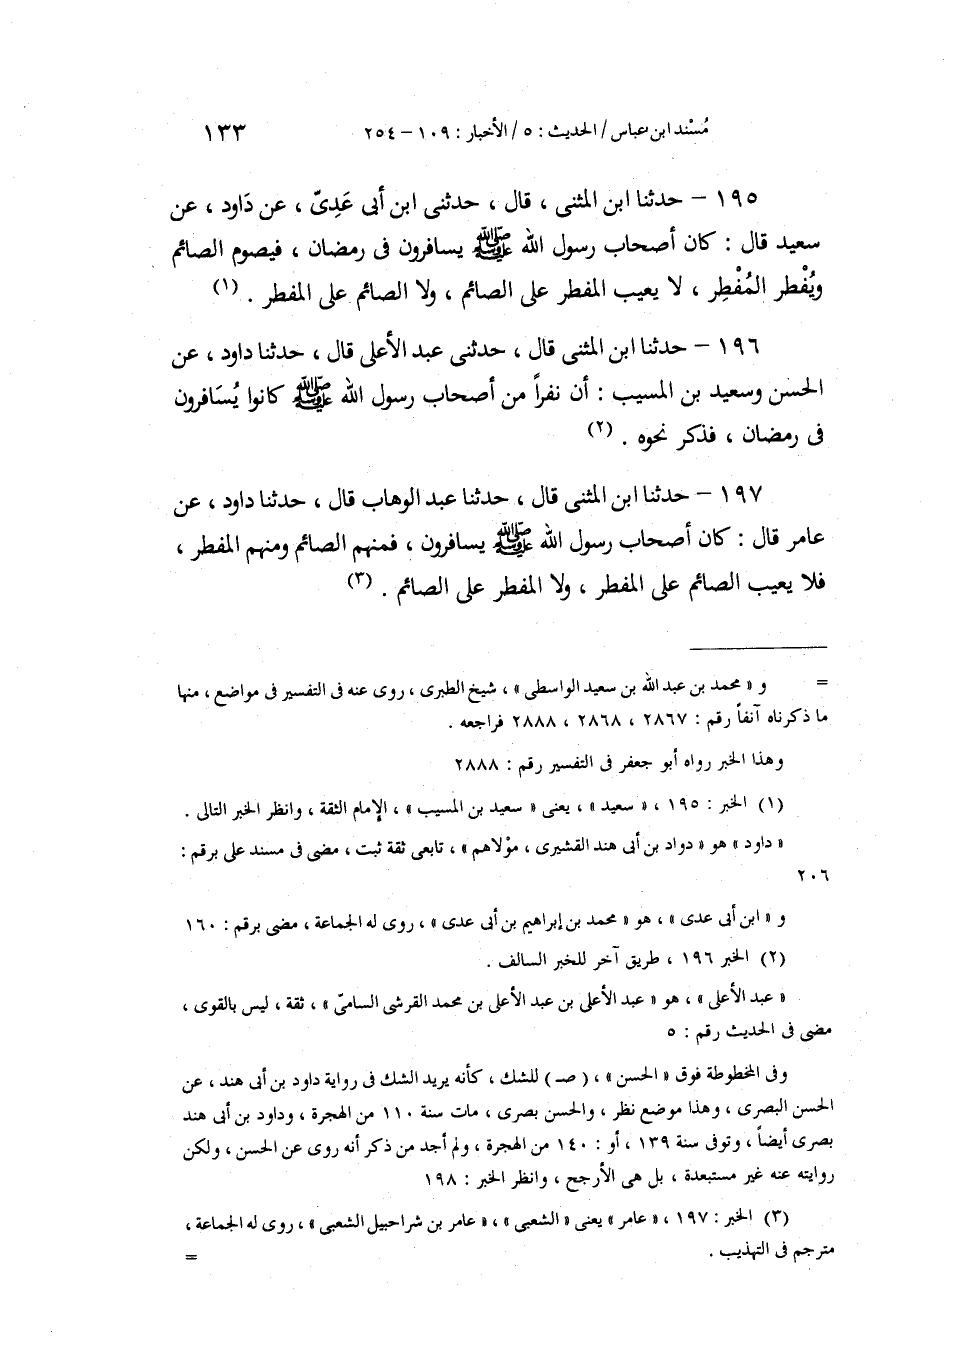 مُسْند ابن عباس / الحديث : ٥ / الأخبار : ١٠٩ – ٢٥٤ ١٣٣
١٩٥ – حدثنا ابن المثنى ، قال ، حدثنى ابن أبى عَدِىّ ، عن دَاود ، عن
سعيد قال : كان أصحاب رسول الله ﷺ يسافرون فى رمضان ، فيصوم الصائم
ويُفْطر المُفْطِر ، لا يعيب المفطر على الصائم ، ولا الصائم على المفطر . (١)
١٩٦ – حدثنا ابن المثنى قال ، حدثنى عبد الأعلى قال ، حدثنا داود ، عن
الحسن وسعيد بن المسيب : أن نفراً من أصحاب رسول الله ﷺ كانوا يُسَافرون
فى رمضان ، فذكر نحوه . (٢)
١٩٧ – حدثنا ابن المثنى قال ، حدثنا عبد الوهاب قال ، حدثنا داود ، عن
عامر قال : كان أصحاب رسول الله ﷺ يسافرون ، فمنهم الصائم ومنهم المفطر ،
فلا يعيب الصائم على المفطر ، ولا المفطر على الصائم . (٣)
= و « محمد بن عبد الله بن سعيد الواسطى » ، شيخ الطبرى ، روى عنه فى التفسير فى مواضع ، منها
ما ذكرناه آنفاً رقم : ٢٨٦٧ ، ٢٨٦٨ ، ٢٨٨٨ فراجعه .
وهذا الخبر رواه أبو جعفر فى التفسير رقم : ٢٨٨٨
(١) الخبر : ١٩٥ ، « سعيد » ، يعنى « سعيد بن المسيب » ، الإمام الثقة ، وانظر الخبر التالى .
« داود » هو « دواد بن أبى هند القشيرى ، موْلاهم » ، تابعى ثقة ثبت ، مضى فى مسند على برقم :
٢٠٦
و « ابن أبى عدى » ، هو « محمد بن إبراهيم بن أبى عدى » ، روى له الجماعة ، مضى برقم : ١٦٠
(٢) الخبر ١٩٦ ، طريق آخر للخبر السالف .
« عبد الأعلى » ، هو « عبد الأعلى بن عبد الأعلى بن محمد القرشى السامىّ » ، ثقة ، ليس بالقوى ،
مضى فى الحديث رقم : ٥
وفى المخطوطة فوق « الحسن » ، ( صـ ) للشك ، كأنه يريد الشك فى رواية داود بن أبى هند ، عن
الحسن البصرى ، وهذا موضع نظر ، والحسن بصرى ، مات سنة ١١٠ من الهجرة ، وداود بن أبى هند
بصرى أيضاً ، وتوفى سنة ١٣٩ ، أو : ١٤٠ من الهجرة ، ولم أجد من ذكر أنه روى عن الحسن ، ولكن
روايته عنه غير مستبعدة ، بل هى الأرجح ، وانظر الخبر : ١٩٨
(٣) الخبر : ١٩٧ ، « عامر » يعنى « الشعبى » ، « عامر بن شراحبيل الشعبى » ، روى له الجماعة ،
مترجم فى التهذيب . =